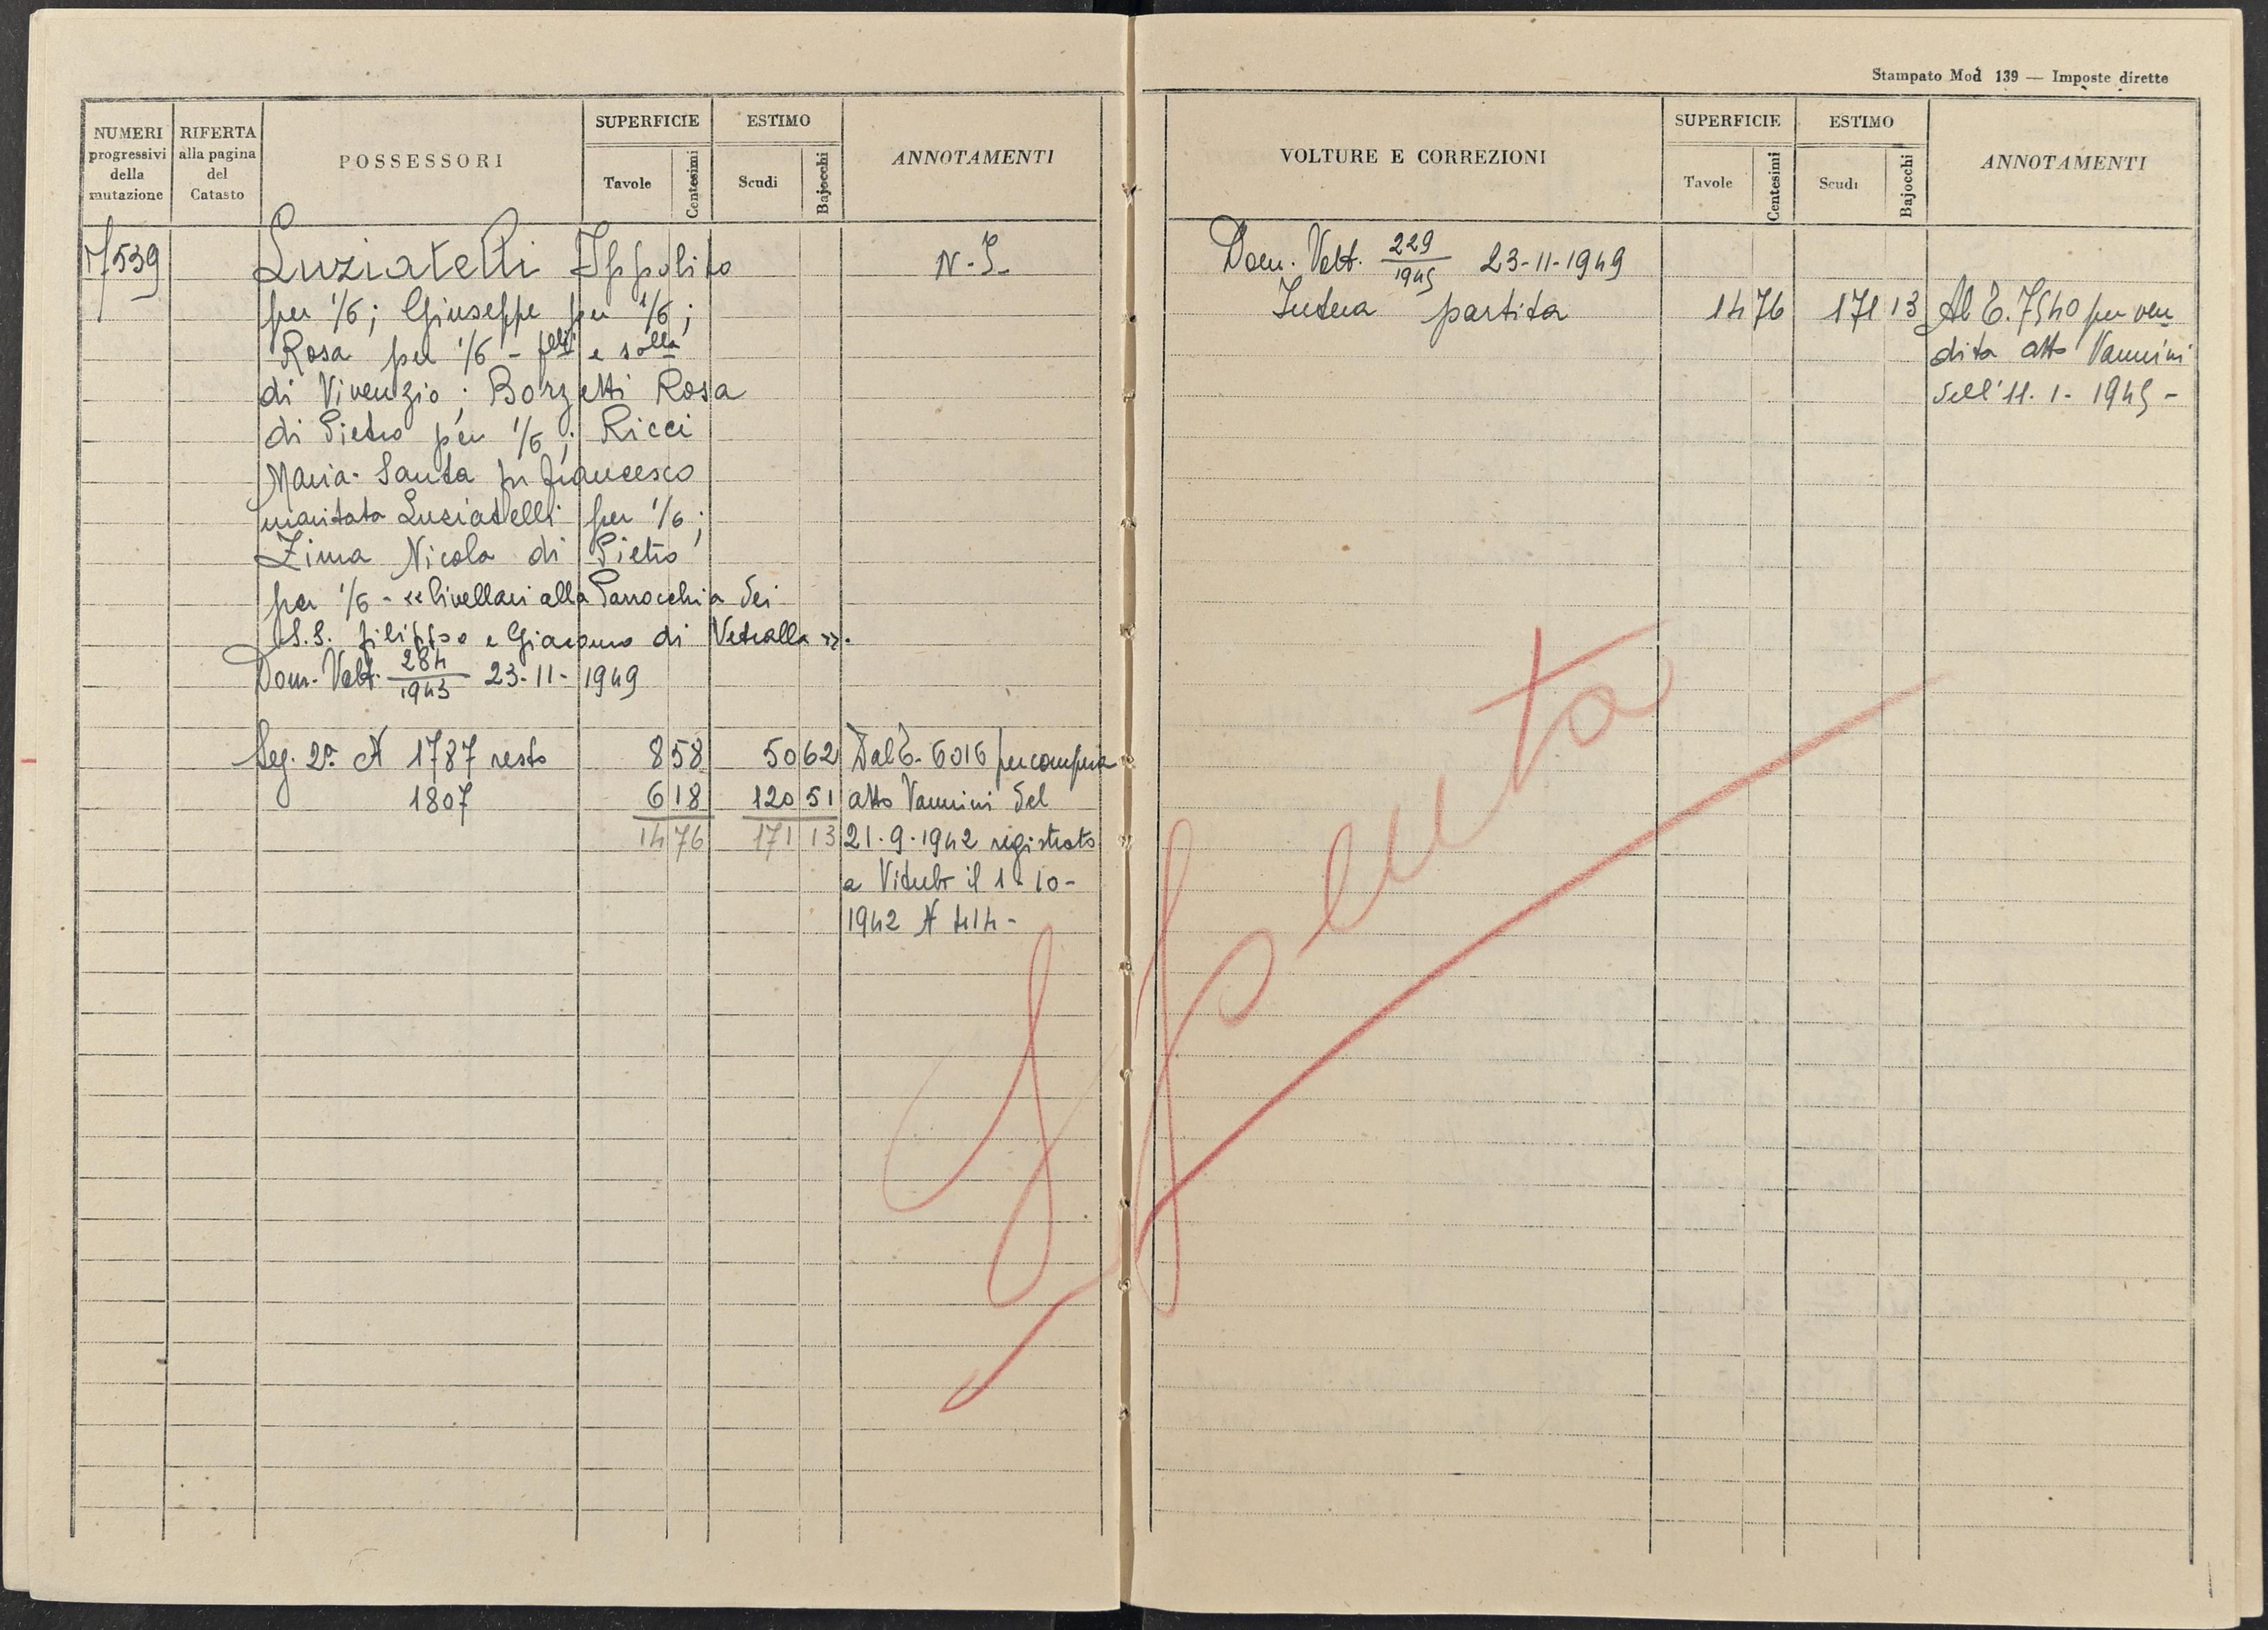 Stampato Mod 139 — Imposte dirette
NUMERI progressivi della mutazione
RIFERTA alla pagina del Catasto
POSSESSORI
SUPERFICIE
Tavole
Centesimi
ESTIMO
Scudi
Bajocchi
ANNOTAMENTI
7539 Luziatelli Ippolito N. I.
per 1/6; Giuseppe per 1/6;
Rosa per 1/6 - flli e solla
di Vivenzio; Borzetti Rosa
di Pietro per 1/6; Ricci
Maria Santa fu Francesco
maritata Luziatelli per 1/6;
Zima Nicola di Pietro
per 1/6 - «livellari alla Parrocchia dei
S.S. Filippo e Giacomo di Vetralla».
Dom. Volt. 284/1943 23-11-1949
Seg. 2a N 1787 resto 8 58 50 62 Dal T. 6016 per compra
1807 6 18 120 51 atto Vannini del
14 76 171 13 21.9.1942 registrato
a Viterbo il 1-10-
1942 N
VOLTURE E CORREZIONI
SUPERFICIE
Tavole
Centesimi
ESTIMO
Scudi
Bajocchi
ANNOTAMENTI
Dom. Volt. 229/1945 23-11-1949
Intera partita 14 76 171 13 Al T. 7540 per ven
dita atto Vannini
dell'11.1-1945-
Spenta